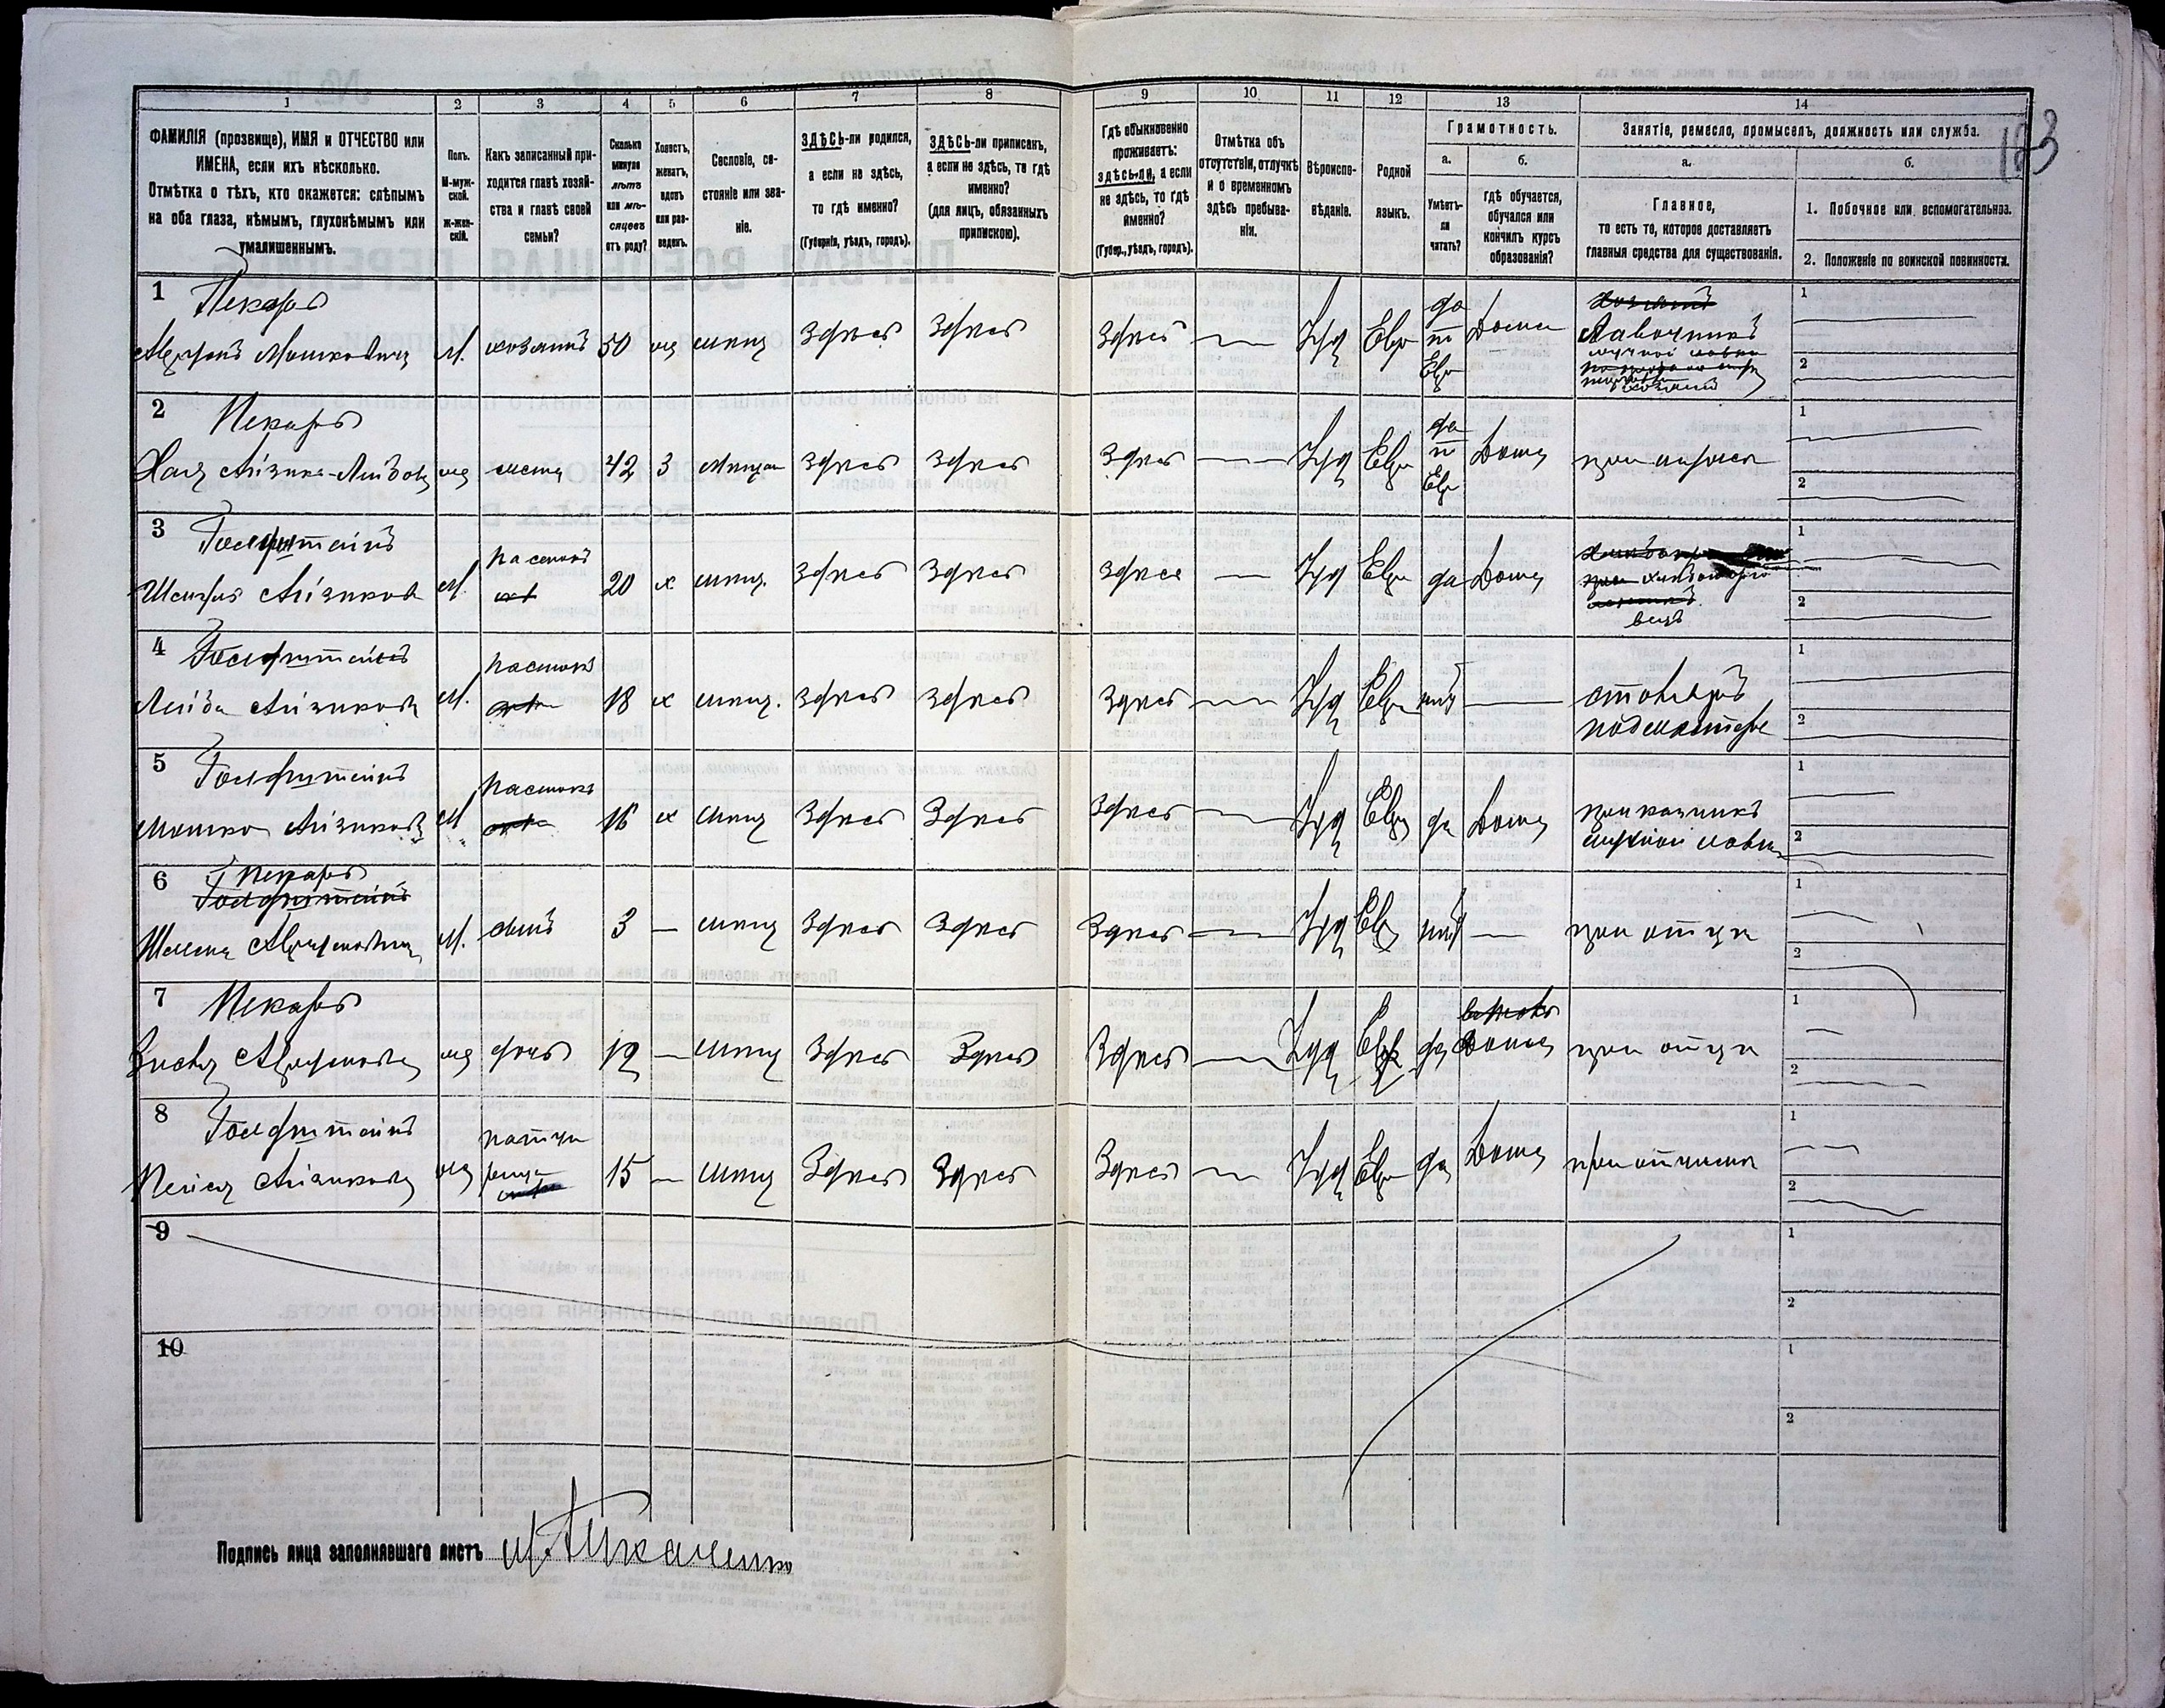 1 2 3 4 5 6 7 8 9 10 11 12 13 14
123
ФАМИЛІЯ (прозвище), ИМЯ и ОТЧЕСТВО или
ИМЕНА, если ихъ нѣсколько.
Отмѣтка о тѣхъ, кто окажется: слѣпымъ
на оба глаза, нѣмымъ, глухонѣмымъ или
умалишеннымъ.
Полъ.
М-муж-
ской.
Ж-жен-
скій.
Какъ записанный при-
ходится главѣ хозяй-
ства и главѣ своей
семьи?
Сколько
минуло
лѣтъ
или мѣ-
сяцевъ
отъ роду?
Холостъ,
женатъ,
вдовъ
или раз-
веденъ.
Сословіе, со-
стояніе или зва-
ніе.
ЗДѢСЬ-ли родился,
а если не здѣсь,
то гдѣ именно?
(Губернія, уѣздъ, городъ).
ЗДѢСЬ-ли приписанъ,
а если не здѣсь, то гдѣ
именно?
(для лицъ, обязанныхъ
припискою).
Гдѣ обыкновенно
проживаетъ:
здѣсь-ли, а если
не здѣсь, то гдѣ
именно?
(Губер., уѣздъ, городъ).
Отмѣтка объ
отсутствіи, отлучкѣ
и о временномъ
здѣсь пребыва-
ніи.
Вѣроиспо-
вѣданіе.
Родной
языкъ.
Грамотность.
а.
Умѣетъ-
ли
читать?
б.
гдѣ обучается,
обучался или
кончилъ курсъ
образованія?
Занятіе, ремесло, промыселъ, должность или служба.
а.
Главное,
то есть то, которое доставляетъ
главныя средства для существованія.
б.
1. Побочное или вспомогательное.
2. Положеніе по воинской повинности.
1 Пекарь
Мошковичъ М. хозяинъ 50 мѣщ Здѣсь Здѣсь Здѣсь — Іуд Евр да по Евр Дома
Лавочникъ
1
2
2 Пекарь
Хая Айзика-Лейбова жена 42 З мѣщан Здѣсь Здѣсь Здѣсь — Іуд Евр да по Евр Дома при мужѣ
1
2
3 Гольдштейнъ
Айзиковъ М. пасынокъ 20 х мѣщ. Здѣсь Здѣсь Здѣсь — Іуд Евр да Дома
1
2
4 Гольдштейнъ
Лейба Айзиковъ М. пасынокъ 18 х мѣщ. Здѣсь Здѣсь Здѣсь — Іуд Евр нѣтъ — столяръ
подмастерье
1
2
5 Гольдштейнъ
Мошко Айзиковъ М пасынокъ 16 х мѣщ Здѣсь Здѣсь Здѣсь — Іуд Евр да Дома приказчикъ
мучной лавки
1
2
6 Пекарь
Гольдштейнъ
М. сынъ 3 — мѣщ Здѣсь Здѣсь Здѣсь — Іуд Евр нѣтъ — при отцѣ
1
2
7 Пекарь
дочь 12 — мѣщ Здѣсь Здѣсь Здѣсь — Іуд Евр да Дома при отцѣ
1
2
8 Гольдштейнъ
Пейся Айзикова падче
рица 15 — мѣщ Здѣсь Здѣсь Здѣсь — Іуд Евр да Дома при отчимѣ
1
2
9
1
2
10
1
2
Подпись лица заполнявшаго листъ Ткаченко